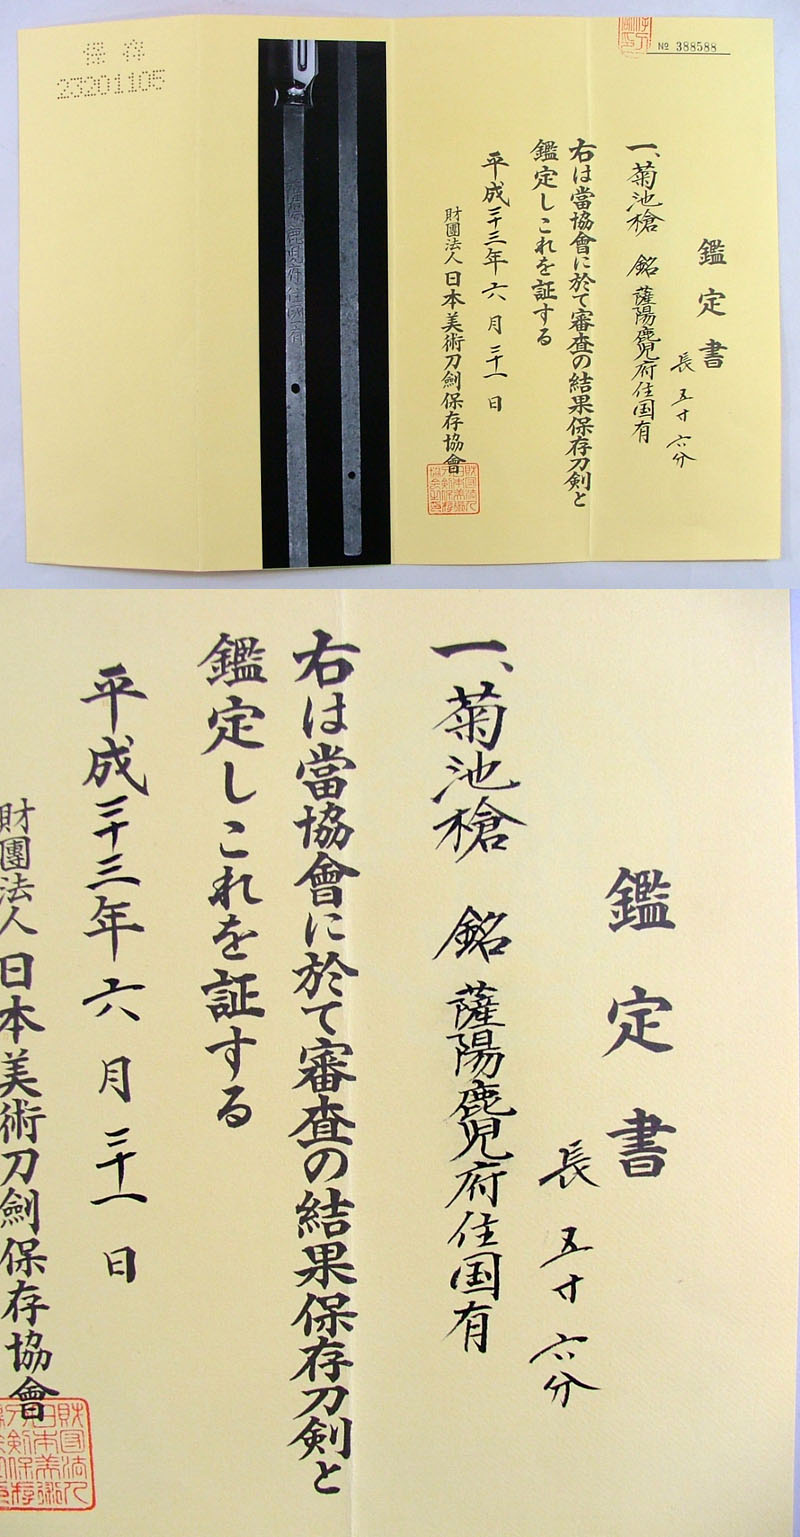 № 388588
鑑定書
長 五寸六分
一、菊池槍 銘 薩陽鹿児府住国有
右は當協會に於て審査の結果保存刀剣と
鑑定しこれを証する
平成二十三年六月二十一日
財團法人日本美術刀劍保存協會
薩陽鹿児府住国有
保存
23201105
鑑定書
長 五寸六分
一、菊池槍 銘 薩陽鹿児府住国有
右は當協會に於て審査の結果保存刀剣と
鑑定しこれを証する
平成二十三年六月二十一日
財團法人日本美術刀劍保存協會